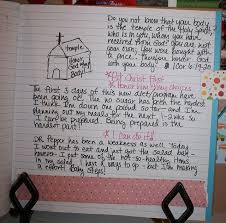 Do you not know that your body
is the temple of the Holy Spirit,
who is in you, whom you have
received from God? You are not
your own; You were bought with
a price. Therefore honor God
with your body. 1 Cor 6:19-20
temple
Honor
God w/my
Body!
*Put Christ First
*Honor Him w/my choices
The first 3 days of this new diet/program have
been going off. The no sugar has been the hardest
I think. I'm down two pounds so far and I'm
planning out my meals for the next 1-2 wks so
I can be prepared. Being prepared is the
hardest part!
*I Can do it!
DR. Pepper has been a weakness as well. Today
I went out to eat and just got the salad bar
however I put some of the not-so-healthy items
in my salad. I have a ways to go - but I'm making
an effort! Baby Steps!